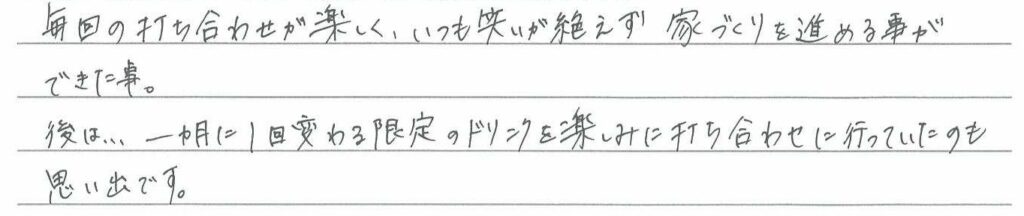 毎回の打ち合わせが楽しく、いつも笑いが絶えず 家づくりを進める事が
できた事。
後は… 一ヵ月に1回変わる限定のドリンクを楽しみに打ち合わせに行っていたのも
思い出です。